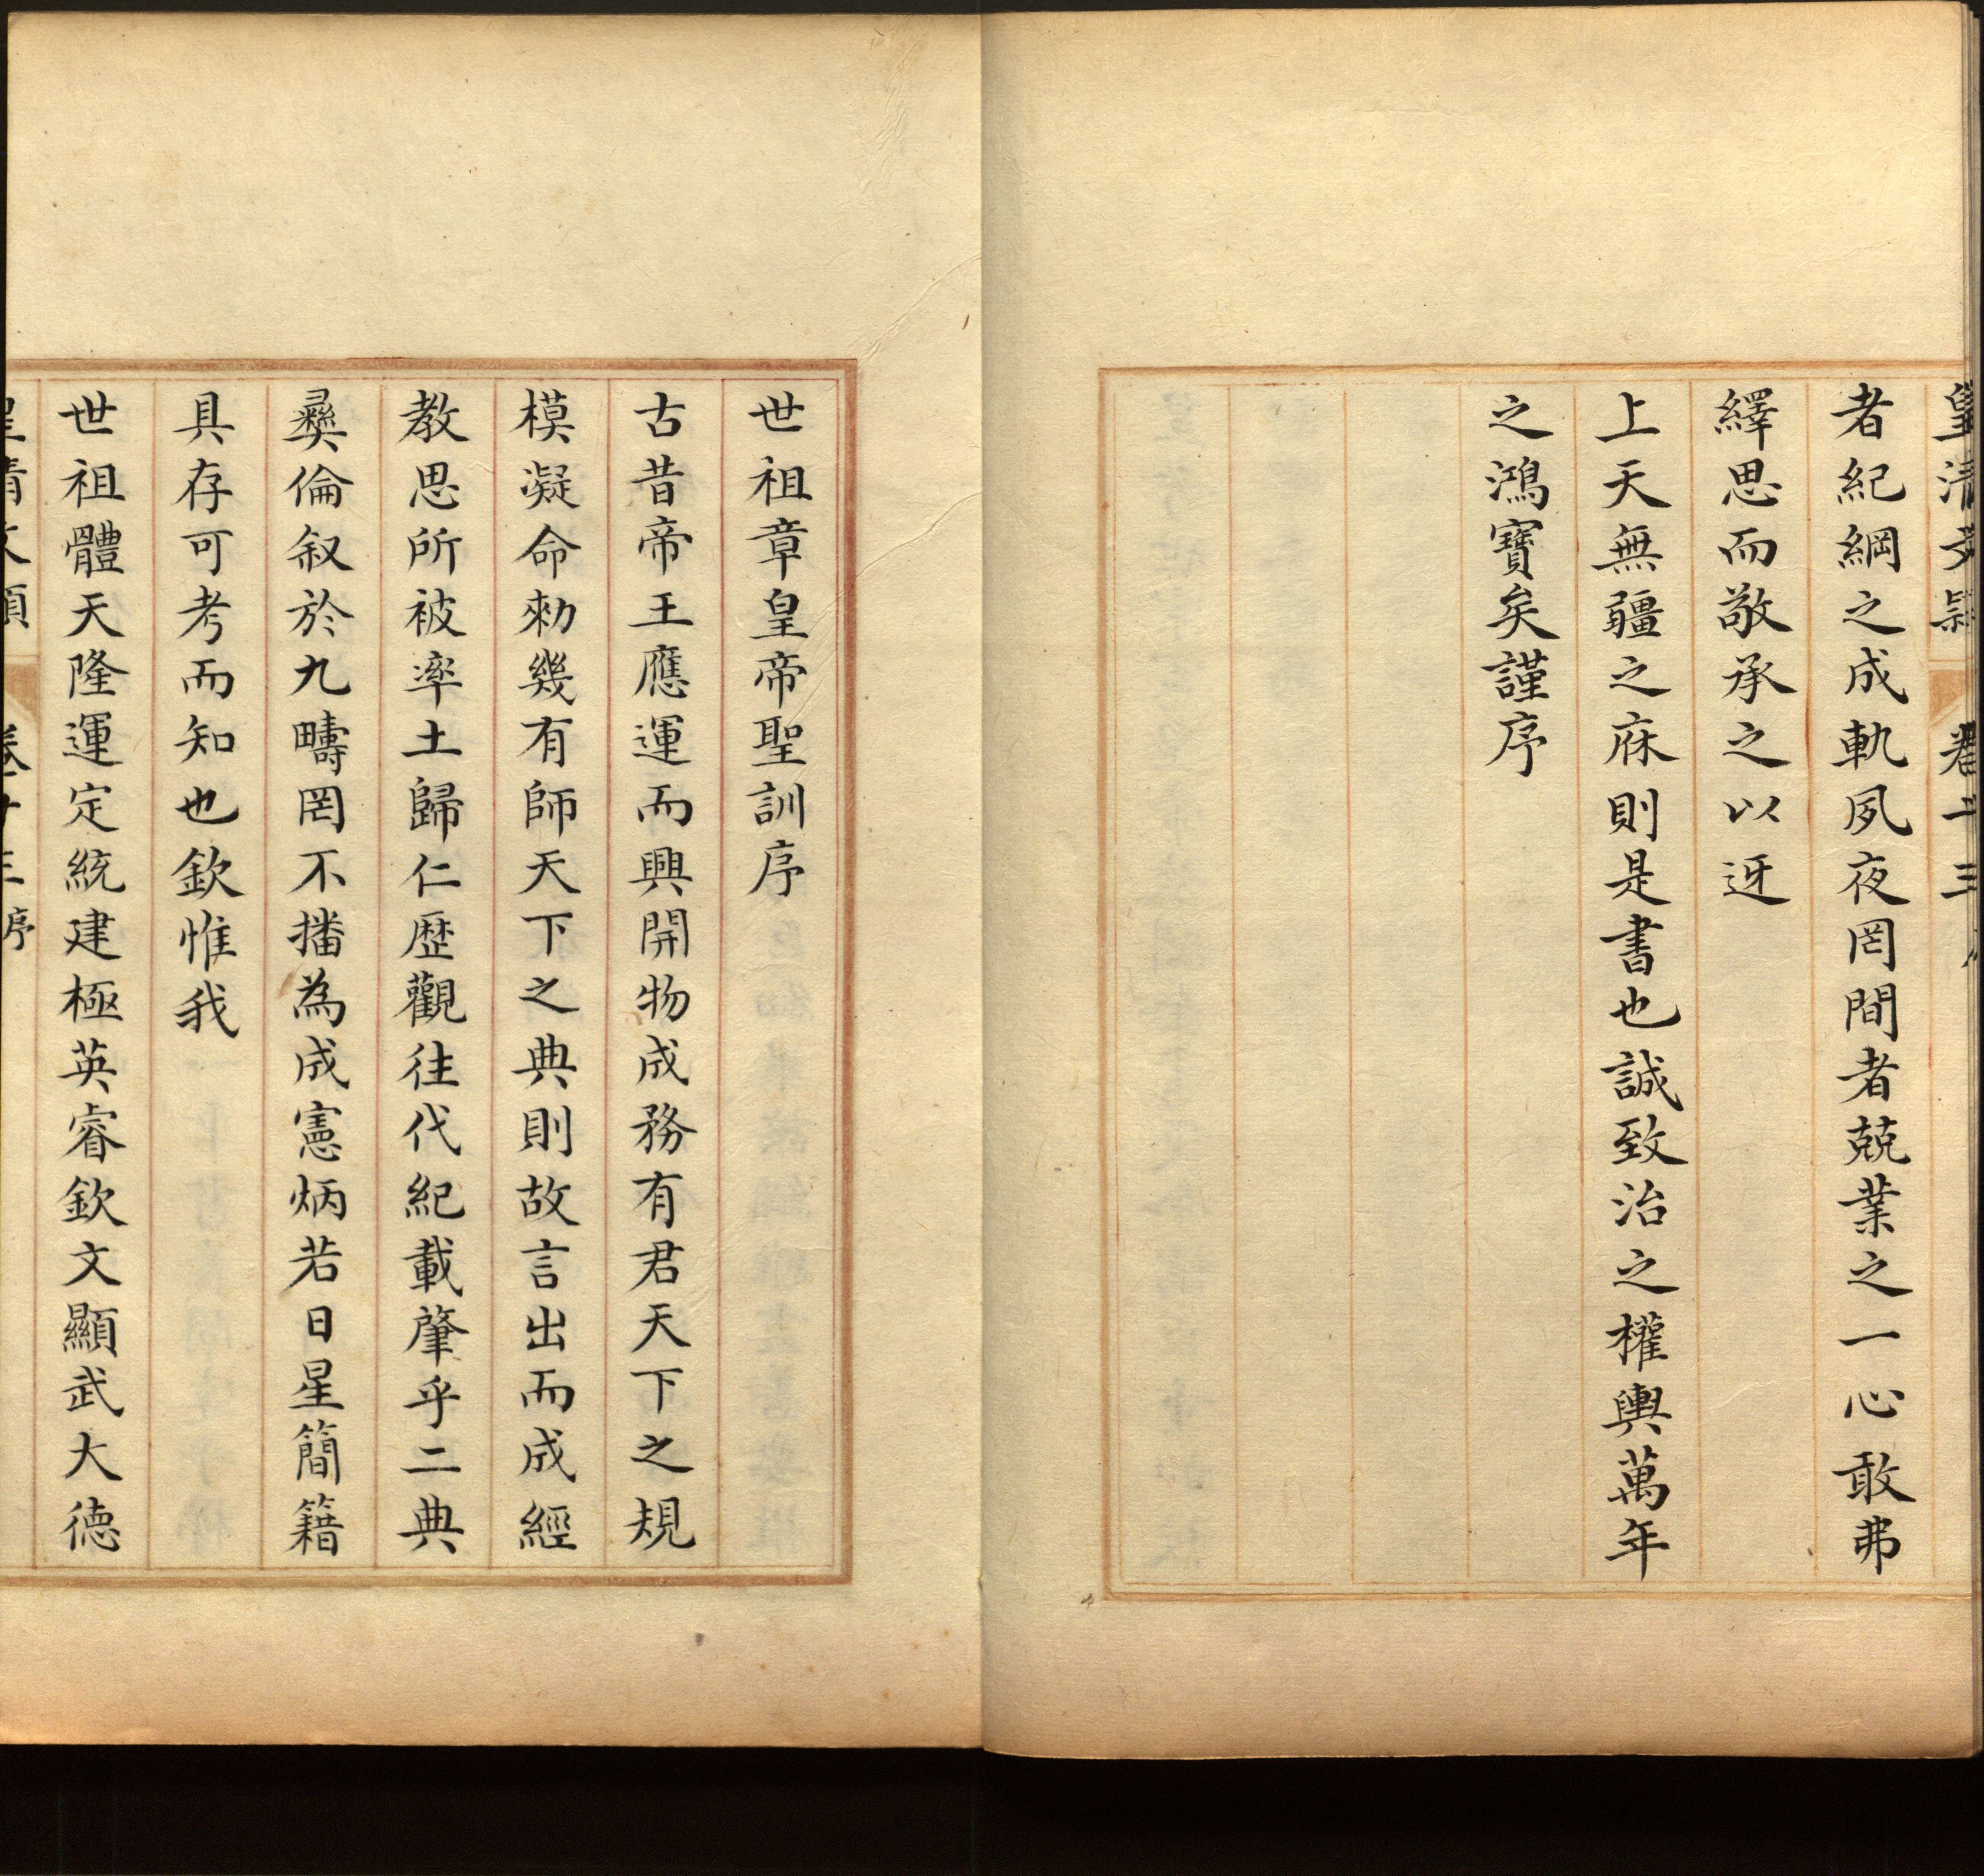 皇清文穎 卷二十三
者紀綱之成軌夙夜罔間者兢業之一心敢弗
繹思而敬承之以迓
上天無疆之庥則是書也誠致治之權輿萬年
之鴻寶矣謹序
世祖章皇帝聖訓序
古昔帝王應運而興開物成務有君天下之規
模凝命勑幾有師天下之典則故言出而成經
教思所被率土歸仁歴觀往代紀載肇乎二典
彞倫叙於九疇罔不播為成憲炳若日星簡籍
具存可考而知也欽惟我
世祖體天隆運定統建極英睿欽文顯武大德
皇清文穎 卷二十三 序